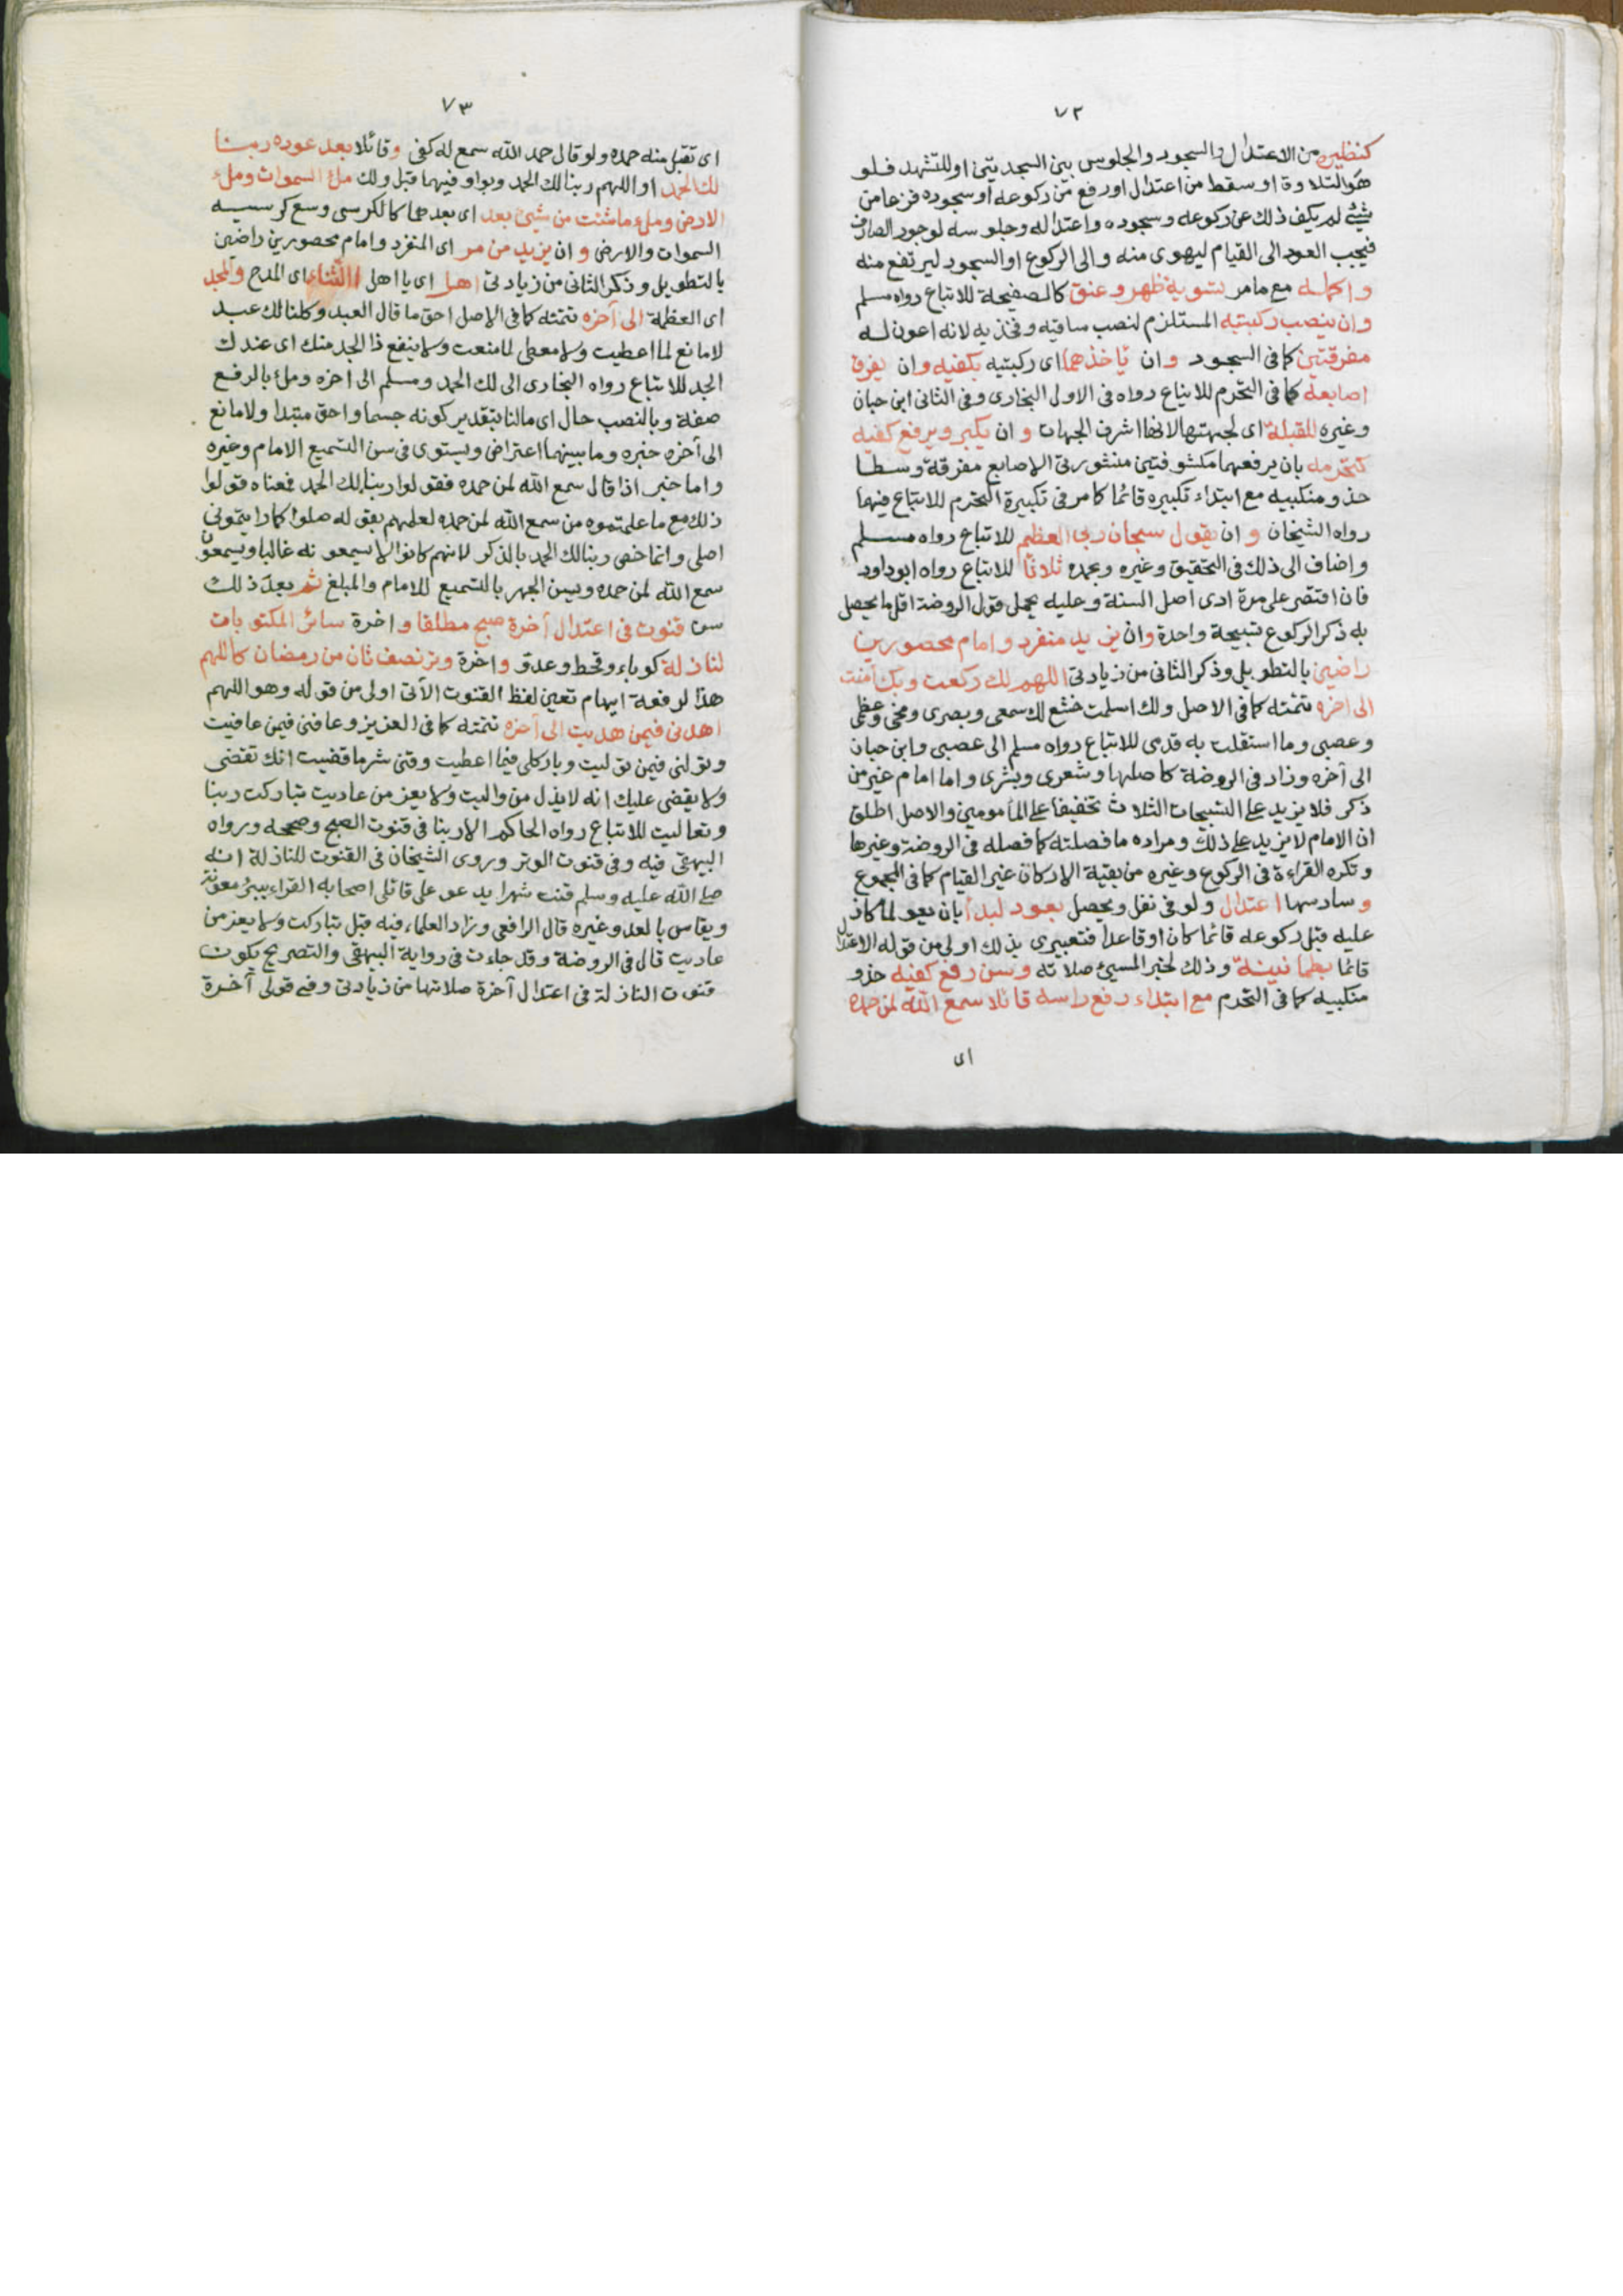 ٧٢
كنظيره من الاعتدال والسجود والجلوس بين السجدتين او للتشهد فلو
هوى لتلاوة او سقط من اعتدال او رفع من ركوعه او سجوده فزعا من
شيئ لم يكف ذلك عن ركوعه وسجوده واعتداله وجلوسه لوجود الصارف
فيجب العود الى القيام ليهوى منه والى الركوع او السجود ليرتفع منه
واكمله مع ما مر تسوية ظهر وعنق كالصفيحة للاتباع رواه مسلم
وان ينصب ركبتيه المستلزم لنصب ساقيه وفخذيه لانه اعون له
مفرقتين كما فى السجود وان ياخذهما اى ركبتيه بكفيه وان يفرق
اصابعه كما فى التحرم للاتباع رواه فى الاول البخارى وفى الثانى ابن حبان
وغيره للقبلة اى لجهتها لانها اشرف الجهات وان يكبر ويرفع كفيه
كتحرمه بان يرفعهما مكشوفتين منشورتى الاصابع مفرقة وسطا
حذو منكبيه مع ابتداء تكبيره قائما كما مر فى تكبيرة التحرم للاتباع فيهما
رواه الشيخان وان يقول سبحان ربى العظيم للاتباع رواه مسلم
واضاف الى ذلك فى التحقيق وغيره وبحمده ثلاثا للاتباع رواه ابو داود
فان اقتصر على مرة ادى اصل السنة وعليه يحمل قول الروضة اقل ما يحصل
به ذكر الركوع تسبيحة واحدة وان يزيد منفرد وامام محصورين
راضين بالتطويل وذكر الثانى من زيادتى اللهم لك ركعت وبك آمنت
الى اخره تتمته كما فى الاصل ولك اسلمت خشع لك سمعى وبصرى ومخى وعظمى
وعصبى وما استقلت به قدمى للاتباع رواه مسلم الى عصبى وابن حبان
الى آخره وزاد فى الروضة كاصلها وشعرى وبشرى واما امام غير من
ذكر فلا يزيد على التسبيحات الثلاث تخفيفا على المأمومين والاصل اطلق
ان الامام لا يزيد على ذلك ومراده ما فصلته كما فصله فى الروضة وغيرها
وتكره القراءة فى الركوع وغيره من بقية الاركان غير القيام كما فى المجموع
وسادسها اعتدال ولو فى نفل ويحصل بعود لبدأ بان يعود لما كان
عليه قبل ركوعه قائما كان او قاعدا فتعبيرى بذلك اولى من قوله الاعتدال
قائما بطمانينة وذلك لخبر المسيئ صلاته وسن رفع كفيه حذو
منكبيه كما فى التحرم مع ابتداء رفع راسه قائلا سمع الله لمن حمده
اى
٧٣
اى تقبل منه حمده ولو قال حمد الله سمع له كفى وقائلا بعد عوده ربنا
لك الحمد او اللهم ربنا لك الحمد وبواو فيهما قبل ولك ملء السموات وملء
الارض وملء ما شئت من شيئ بعد اى بعدهما كالكرسى وسع كرسيه
السموات والارض وان يزيد من مر اى المنفرد وامام محصورين راضين
بالتطويل وذكر الثانى من زيادتى اهل اى يا اهل الثناء اى المدح والمجد
اى العظمة الى آخره تتمته كما فى الاصل احق ما قال العبد وكلنا لك عبد
لا مانع لما اعطيت ولا معطى لما منعت ولا ينفع ذا الجد منك اى عندك
الجد للاتباع رواه البخارى الى لك الحمد ومسلم الى اخره وملء بالرفع
صفة وبالنصب حال اى مالئا بتقدير كونه جسما واحق مبتدا ولا مانع
الى آخره خبره وما بينهما اعتراض ويستوى فى سن التسميع الامام وغيره
واما خبر اذا قال سمع الله لمن حمده فقولوا ربنا لك الحمد فمعناه قولوا
ذلك مع ما علمتموه من سمع الله لمن حمده لعلمهم بقوله صلوا كما رايتمونى
اصلى وانما خص ربنا لك الحمد بالذكر لانهم كانوا لا يسمعونه غالبا ويسمعون
سمع الله لمن حمده ويسن الجهر بالتسميع للامام والمبلغ ثم بعد ذلك
سن قنوت فى اعتدال آخرة صبح مطلقا واخرة سائر المكتوبات
لنازلة كوباء وقحط وعدو واخرة وتر نصف ثان من رمضان كاللهم
هذا لرفعه ايهام تعين لفظ القنوت الآتى اولى من قوله وهو اللهم
اهدنى فيمن هديت الى آخره تتمته كما فى العزيز وعافنى فيمن عافيت
وتولنى فيمن توليت وبارك لى فيما اعطيت وقنى شر ما قضيت انك تقضى
ولا يقضى عليك انه لا يذل من واليت ولا يعز من عاديت تباركت ربنا
وتعاليت للاتباع رواه الحاكم الا ربنا فى قنوت الصبح وصححه ورواه
البيهقى فيه وفى قنوت الوتر وروى الشيخان فى القنوت للنازلة انه
صلى الله عليه وسلم قنت شهرا يدعو على قاتلى اصحابه القراء ببئر معونة
ويقاس بالعدو غيره قال الرافعى وزاد العلماء فيه قبل تباركت ولا يعز من
عاديت قال فى الروضة وقد جاءت فى رواية البيهقى والتصريح بكون
قنوت النازلة فى اعتدال آخرة صلاتها من زيادتى وفى قولى آخرة